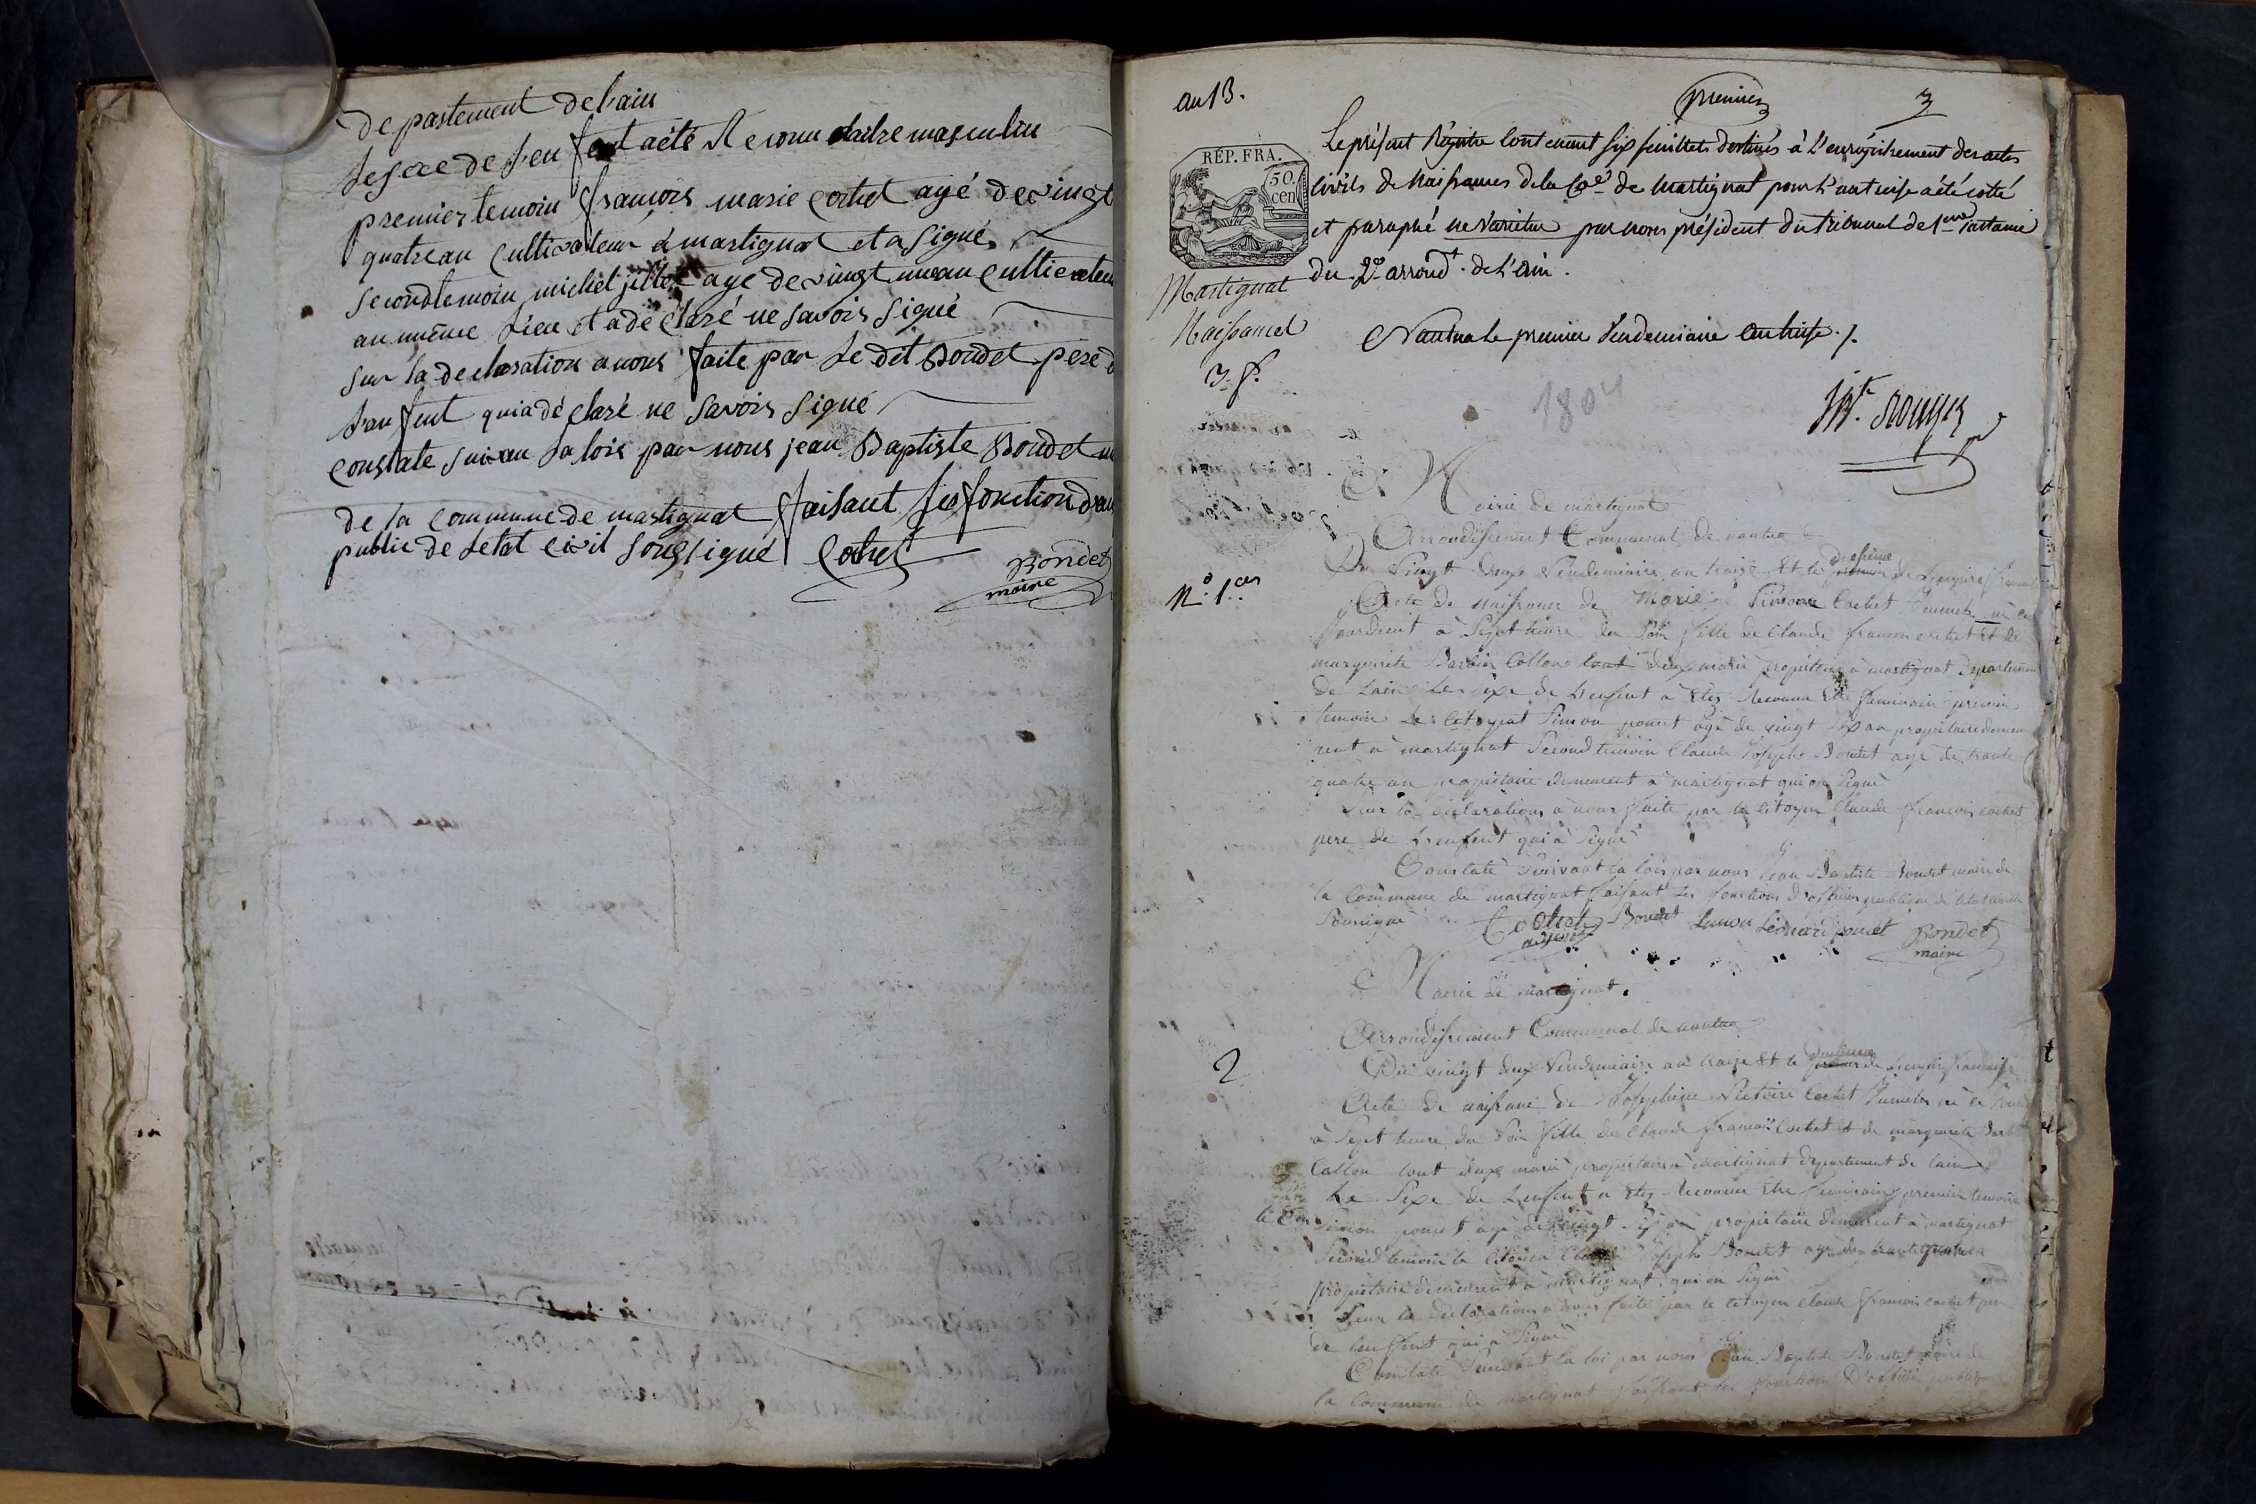 departement de l'ain
le sexe de l'enfent a été Reconu etre masculin
premier temoin francois marie cochet agé de vingt
quatre an cultivateur a martignat et a signé
second temoin michel jillet agé de vingt un an cultivateur
au meme lieu et a déclaré ne savoir signé
sur la declaration a nous faite par le dit Bondet pere d
l'anfent qui a déclaré ne savoir signé
constaté suivan la lois par nous jean Baptiste Bondet m
de la commune de martignat faisant les fonction d'
public de letat civil soussigné Cochet
Bondet
maire
an 13.
premier
3
Le présent Régistre contenant six feuillets destinés à l'enrégistrement des actes
civils de Naissances de la Cne de Martignat pour l'an treise a été cotté
et paraphé ne varietur par nous président du tribunal de 1ere instance
du 2e arrondt. de l'Ain.
RÉP. FRA.
50
cen
Martignat
Naissances
3 f.
Nantua le premier Vendemiaire an treise
1804
Mairie de martignat
Arrondissement Communal de nantua
N.o 1.er
Du vingt deux vendemiaire an treize et le de l'empire
Acte de naissance de Marie Cochet Jumele née
à sept heure du soir fille de Claude francois cochet et de
marguerite Collon tout deux marié propriétaire a martignat departement
de lain Le sexe de l'enfent a été reconnu etre feminain premier
temoin Le citoyent Simon ponset agé de vingt six an propriétaire demeu
rent a martignat second temoin Claude Joseph Bondet agé de trante
quatre an propriétaire demeurent a martignat qui on signé
sur la declarations a nous faite par le citoyen Claude francois cochet
pere de l'enfent qui à signé
Constaté suivant la lois par nous Jean Baptiste Bondet maire de
la Commune de martignat faisant les fonctions d'officier publique de letat civille
Soussigné Cochet Bondet Simon Léonard ponset Bondet
maire
Mairie de martignat.
Arrondissement Communal de nantua
2
Du vingt deux Vendemiaire an treize et le de l'empire francaise
Acte de naissance de Josephine Victoire Cochet Jumeles né ce
à sept heure du soir fille de Claude francois Cochet et de marguerite
Collon tout deux marié propriétaire a martignat departement de lain
Le sexe de l'enfent a été reconnu etre feminain premier temoin
Simon ponset agé de vingt six an propriétaire demeurent à martignat
second temoin le citoien Claude Joseph Bondet agé de trante quatre an
propriétaire demeurent à martignat qui on signé
sur la declarations a nous faite par le citoyen Claude francois cochet pere
de lenfent qui à signé
Constaté suivant la loi par nous Jean Baptiste Bondet maire de
la Commune de martignat faisant les fonctions d'officié publique